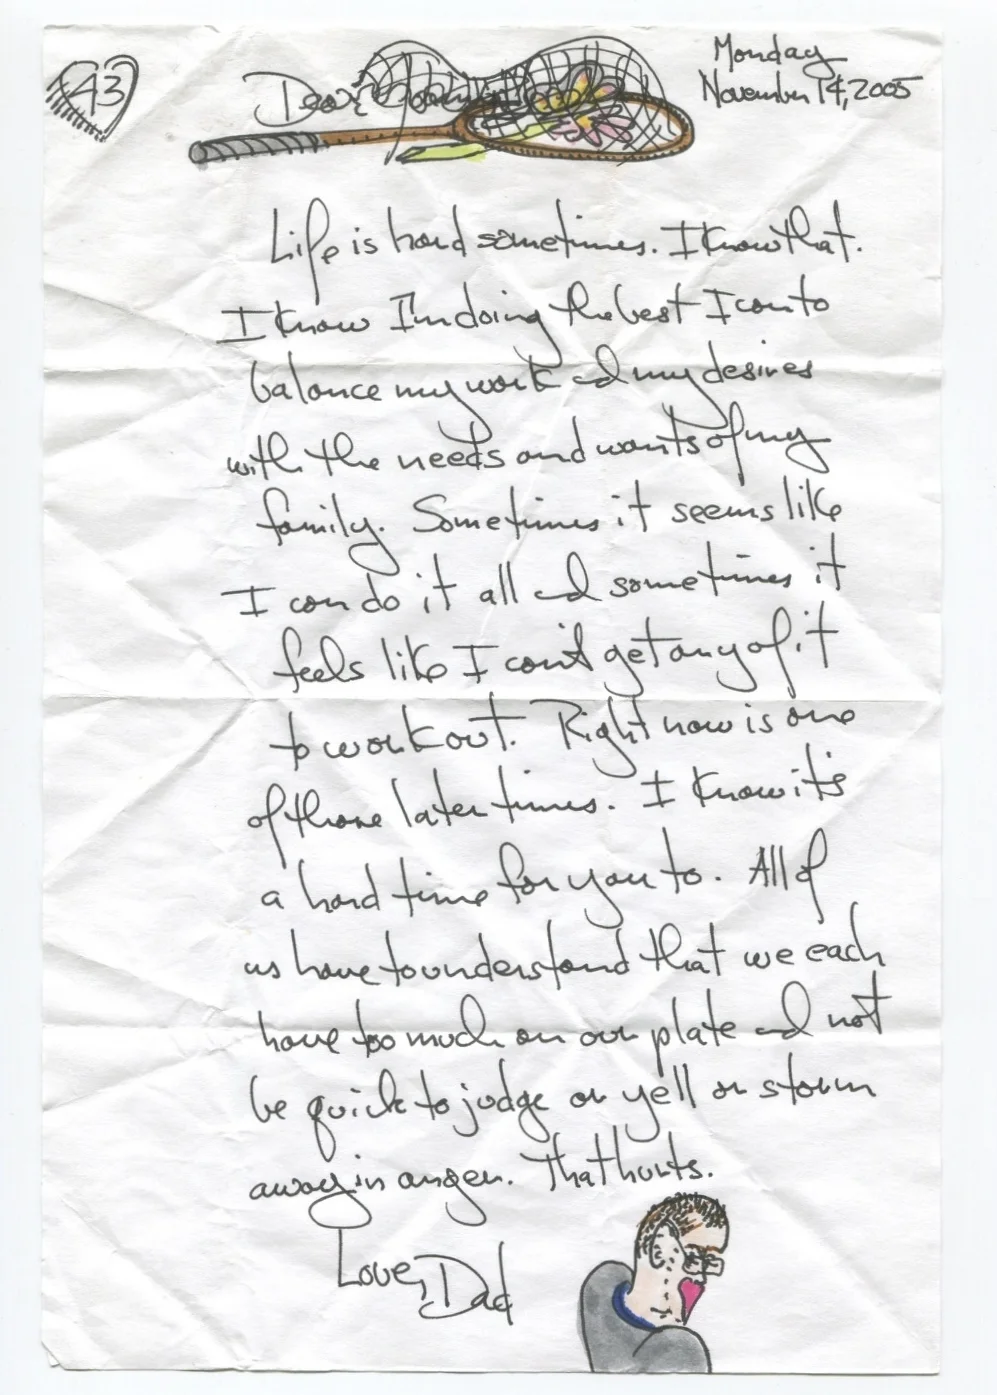 43
Monday
November 14, 2005
Dear
Life is hard sometimes. I know that.
I know I'm doing the best I can to
balance my work and my desires
with the needs and wants of my
family. Sometimes it seems like
I can do it all and sometimes it
feels like I can't get any of it
to work out. Right now is one
of those later times. I know it's
a hard time for you to. All of
us have to understand that we each
have too much on our plate and not
be quick to judge or yell or storm
away in anger. That hurts.
Love, Dad